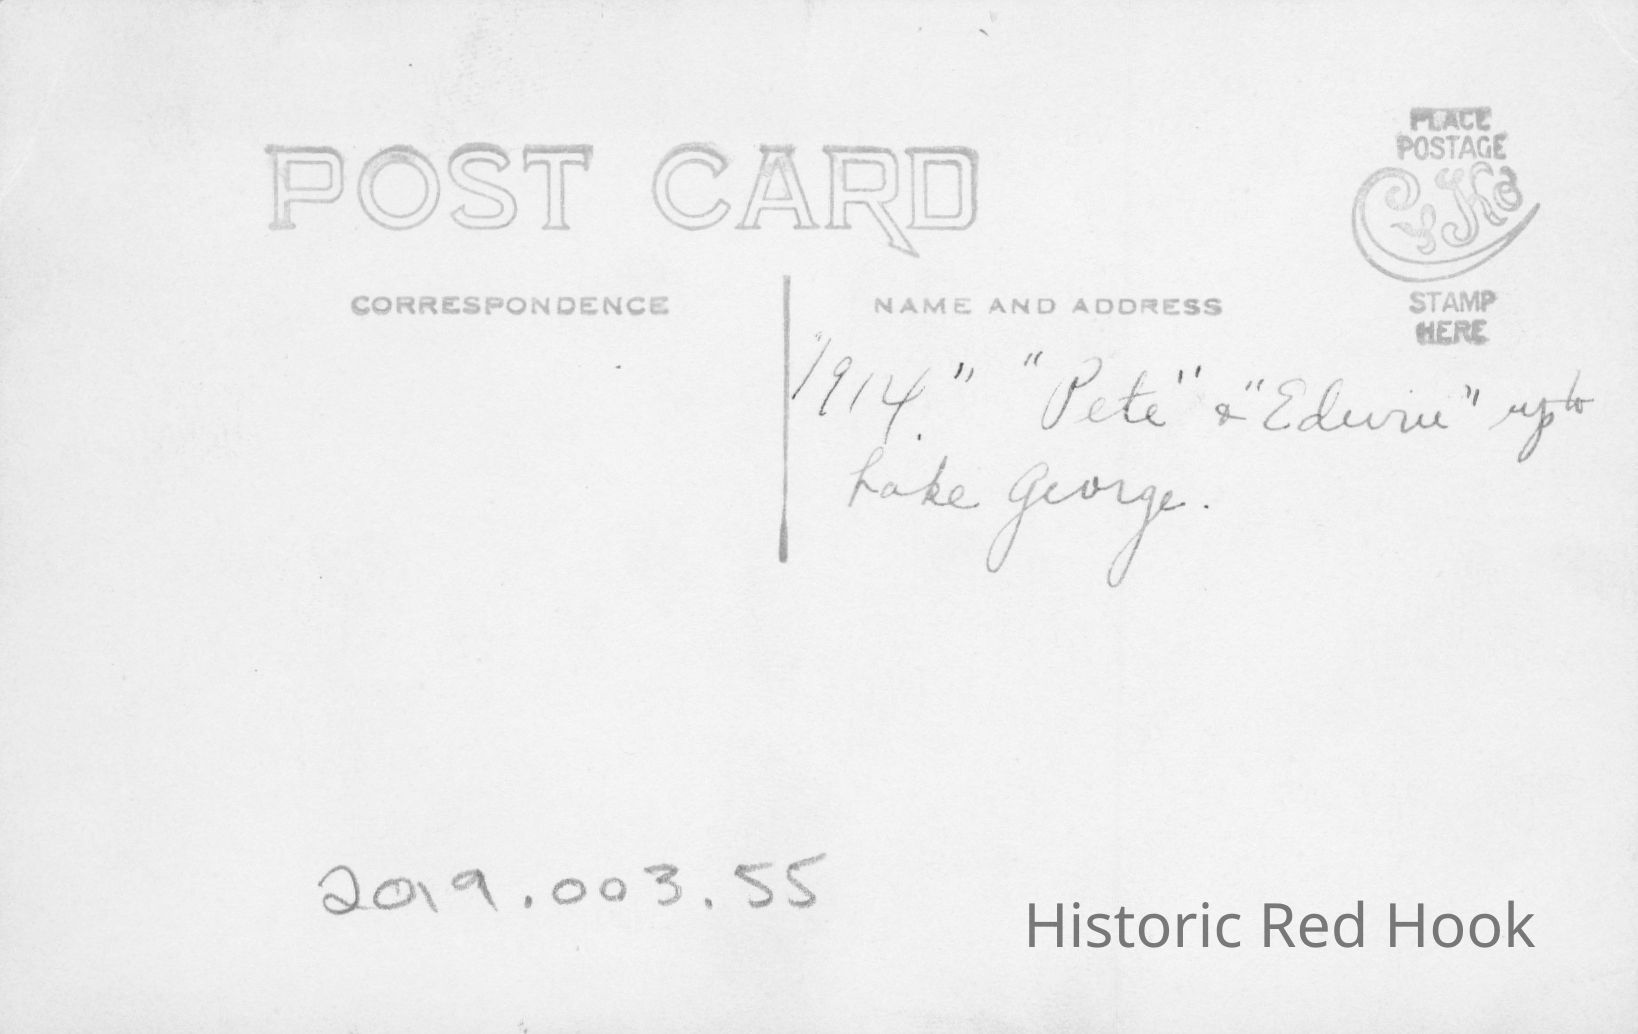 POST CARD
PLACE
POSTAGE
CyKo
STAMP
HERE
CORRESPONDENCE
NAME AND ADDRESS
"1914." "Pete" & "Edwin" up to
Lake George.
2019.003.55
Historic Red Hook